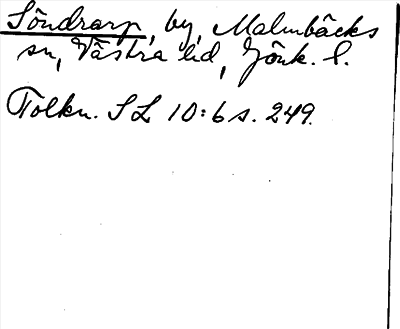 Söndrarp, by, Malmbäcks
sn, Västra hd, Jönk. l.
Tolkn. SL 10:6 s. 249.